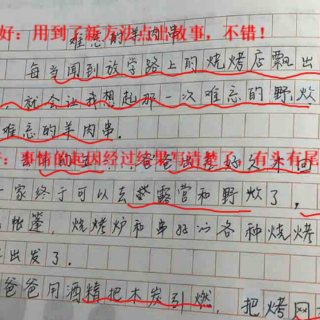 好：用到了新方法点出故事，不错！
难忘的羊肉串
每当闻到放学路上的烧烤店飘出
就会让我想起那一次难忘的野炊
难忘的羊肉串.
：事情的起因经过结果写清楚了，有头有尾
爸爸
一家终于可以去露营和野炊了，
帐篷，烧烤炉和串好的各种烧烤
出发了.
爸爸用酒精把木炭引燃，把烤网